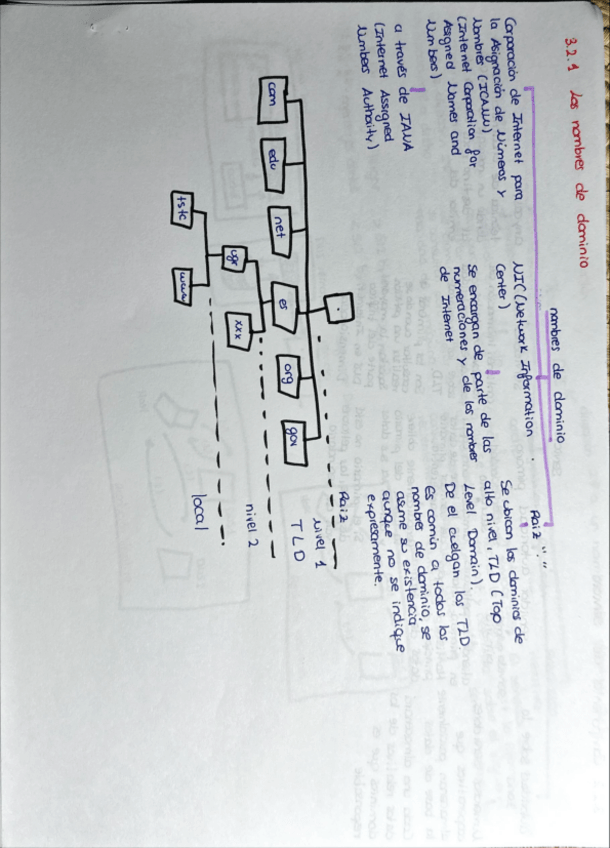 3.2.1 Los nombres de dominio
nombres de dominio
Corporación de Internet para
la Asignación de Números y
Nombres (ICANN)
(Internet Corporation for
Assigned Names and
Numbers)
a través de IANA
(Internet Assigned
Numbers Authority)
NIC (Network Information
Center)
Se encargan de parte de las
numeraciones y de los nombres
de Internet
Raiz "."
Se ubican los dominios de
alto nivel, TLD (Top
Level Domain).
De el cuelgan los TLD.
Es común a todos los
nombres de dominio, se
asume su existencia
aunque no se indique
expresamente.
.
Raiz
com
edu
net
es
org
gov
nivel 1
TLD
ugr
xxx
nivel 2
tstc
www
local